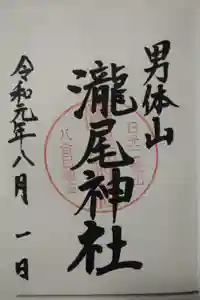 男体山
瀧尾神社
令和元年八月一日